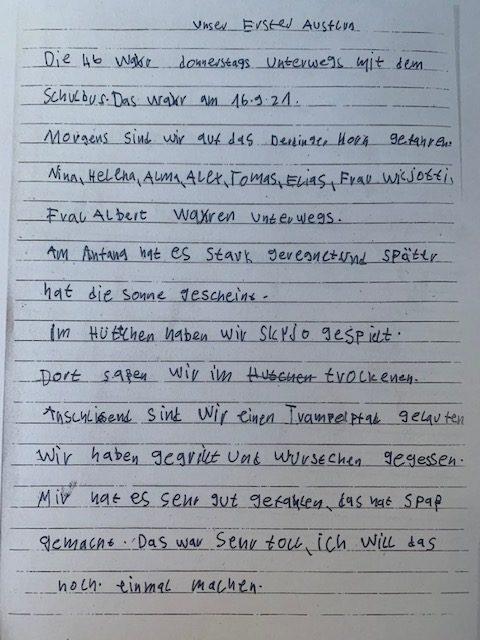 Unser Erster Ausflug
Die 4b wahr donnerstags unterwegs mit dem
Schulbus. Das wahr am 16.9.21.
Morgens sind wir auf das Derdinger Horn gefahren.
Nina, Helena, Alma, Alex, Tomas, Elias, Frau
Frau Albert wahren unterwegs.
Am Anfang hat es stark geregnet und spätter
hat die sonne gescheint.
Im Hüttchen haben wir SKYJO gespielt.
Dort saßen wir im Hütchen trockenen.
Anschlissend sind wir einen Trampelpfad gelaufen
Wir haben gegrillt und würstchen gegessen.
Mir hat es sehr gut gefahlen, das hat Spaß
gemacht. Das war sehr toll, ich will das
noch einmal machen.